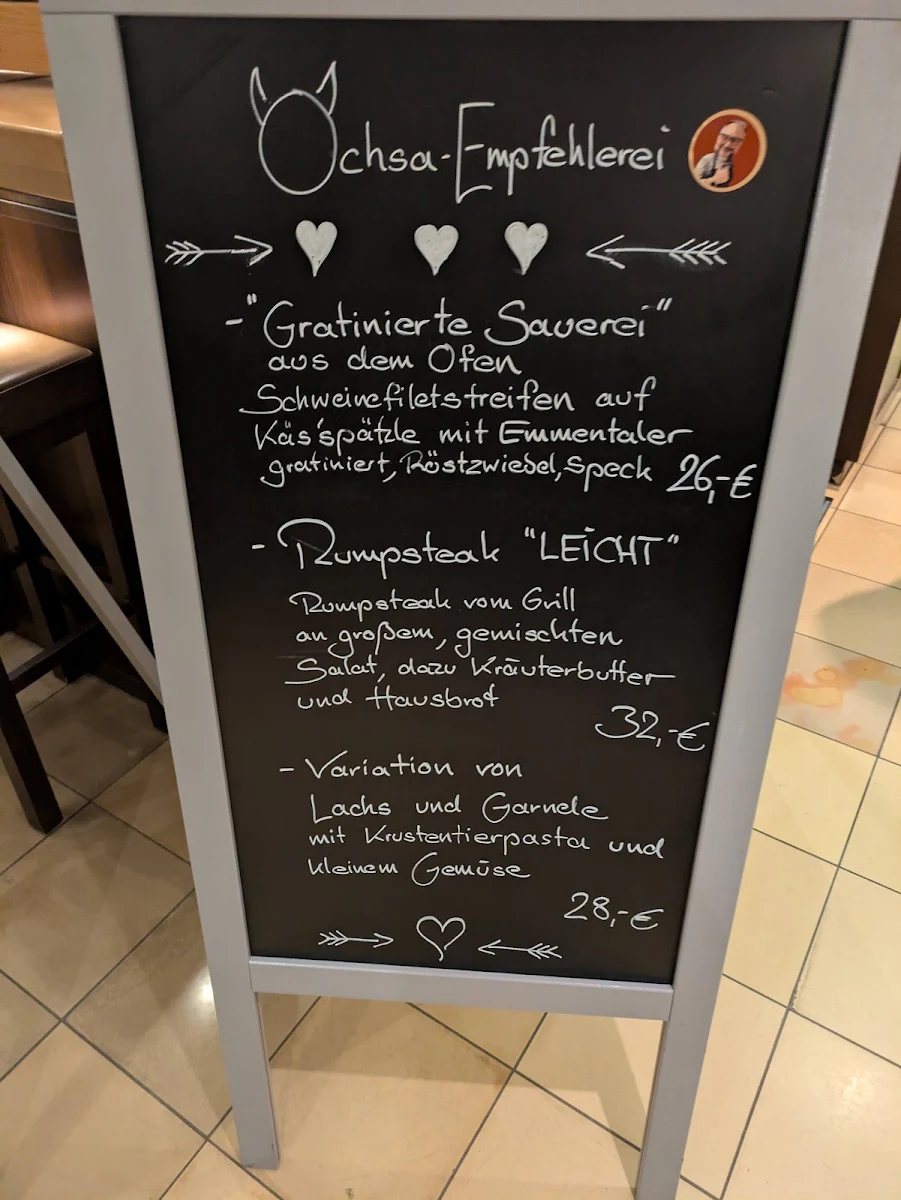 Ochsa-Empfehlerei
- "Gratinierte Sauerei"
aus dem Ofen
Schweinefiletstreifen auf
Käs'spätzle mit Emmentaler
gratiniert, Röstzwiebel, Speck 26,-€
- Rumpsteak "LEICHT"
Rumpsteak vom Grill
an großem, gemischten
Salat, dazu Kräuterbutter
und Hausbrot
32,-€
- Variation von
Lachs und Garnele
mit Krustentierpasta und
kleinem Gemüse
28,-€